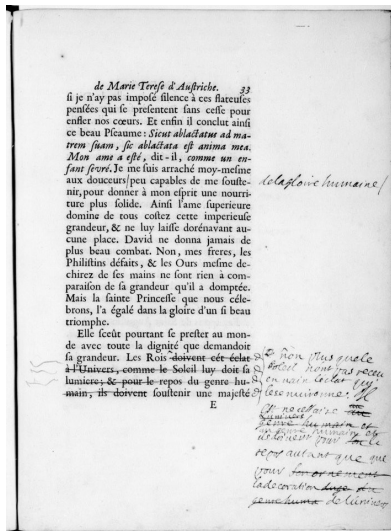 de Marie Terese d'Austriche. 33
si je n'ay pas imposé silence à ces flateuses
pensées qui se presentent sans cesse pour
enfler nos cœurs. Et enfin il conclut ainsi
ce beau Pseaume : Sicut ablactatus ad ma-
trem suam, sic ablactata est anima mea.
Mon ame a esté, dit-il, comme un en-
fant sevré. Je me suis arraché moy-mesme
aux douceurs/peu capables de me souste-
nir, pour donner à mon esprit une nourri-
ture plus solide. Ainsi l'ame superieure
domine de tous costez cette imperieuse
grandeur, & ne luy laisse dorénavant au-
cune place. David ne donna jamais de
plus beau combat. Non, mes freres, les
Philistins défaits, & les Ours mesme dé-
chirez de ses mains ne sont rien à com-
paraison de sa grandeur qu'il a domptée.
Mais la sainte Princesse que nous céle-
brons, l'a égalé dans la gloire d'un si beau
triomphe.
Elle sceût pourtant se prester au mon-
de avec toute la dignité que demandoit
sa grandeur. Les Rois doivent cét éclat
à l'Univers, comme le Soleil luy doit sa
lumiere; & pour le repos du genre hu-
main, ils doivent soustenir une majesté
E
de la gloire humaine/
non plus que le
Soleil n'ont pas receu
en vain l'eclat qui
les environne. Il
est necessaire au
genre humain et
ils doivent pour le
repos autant que
pour
la decoration
genre huma de l'univers